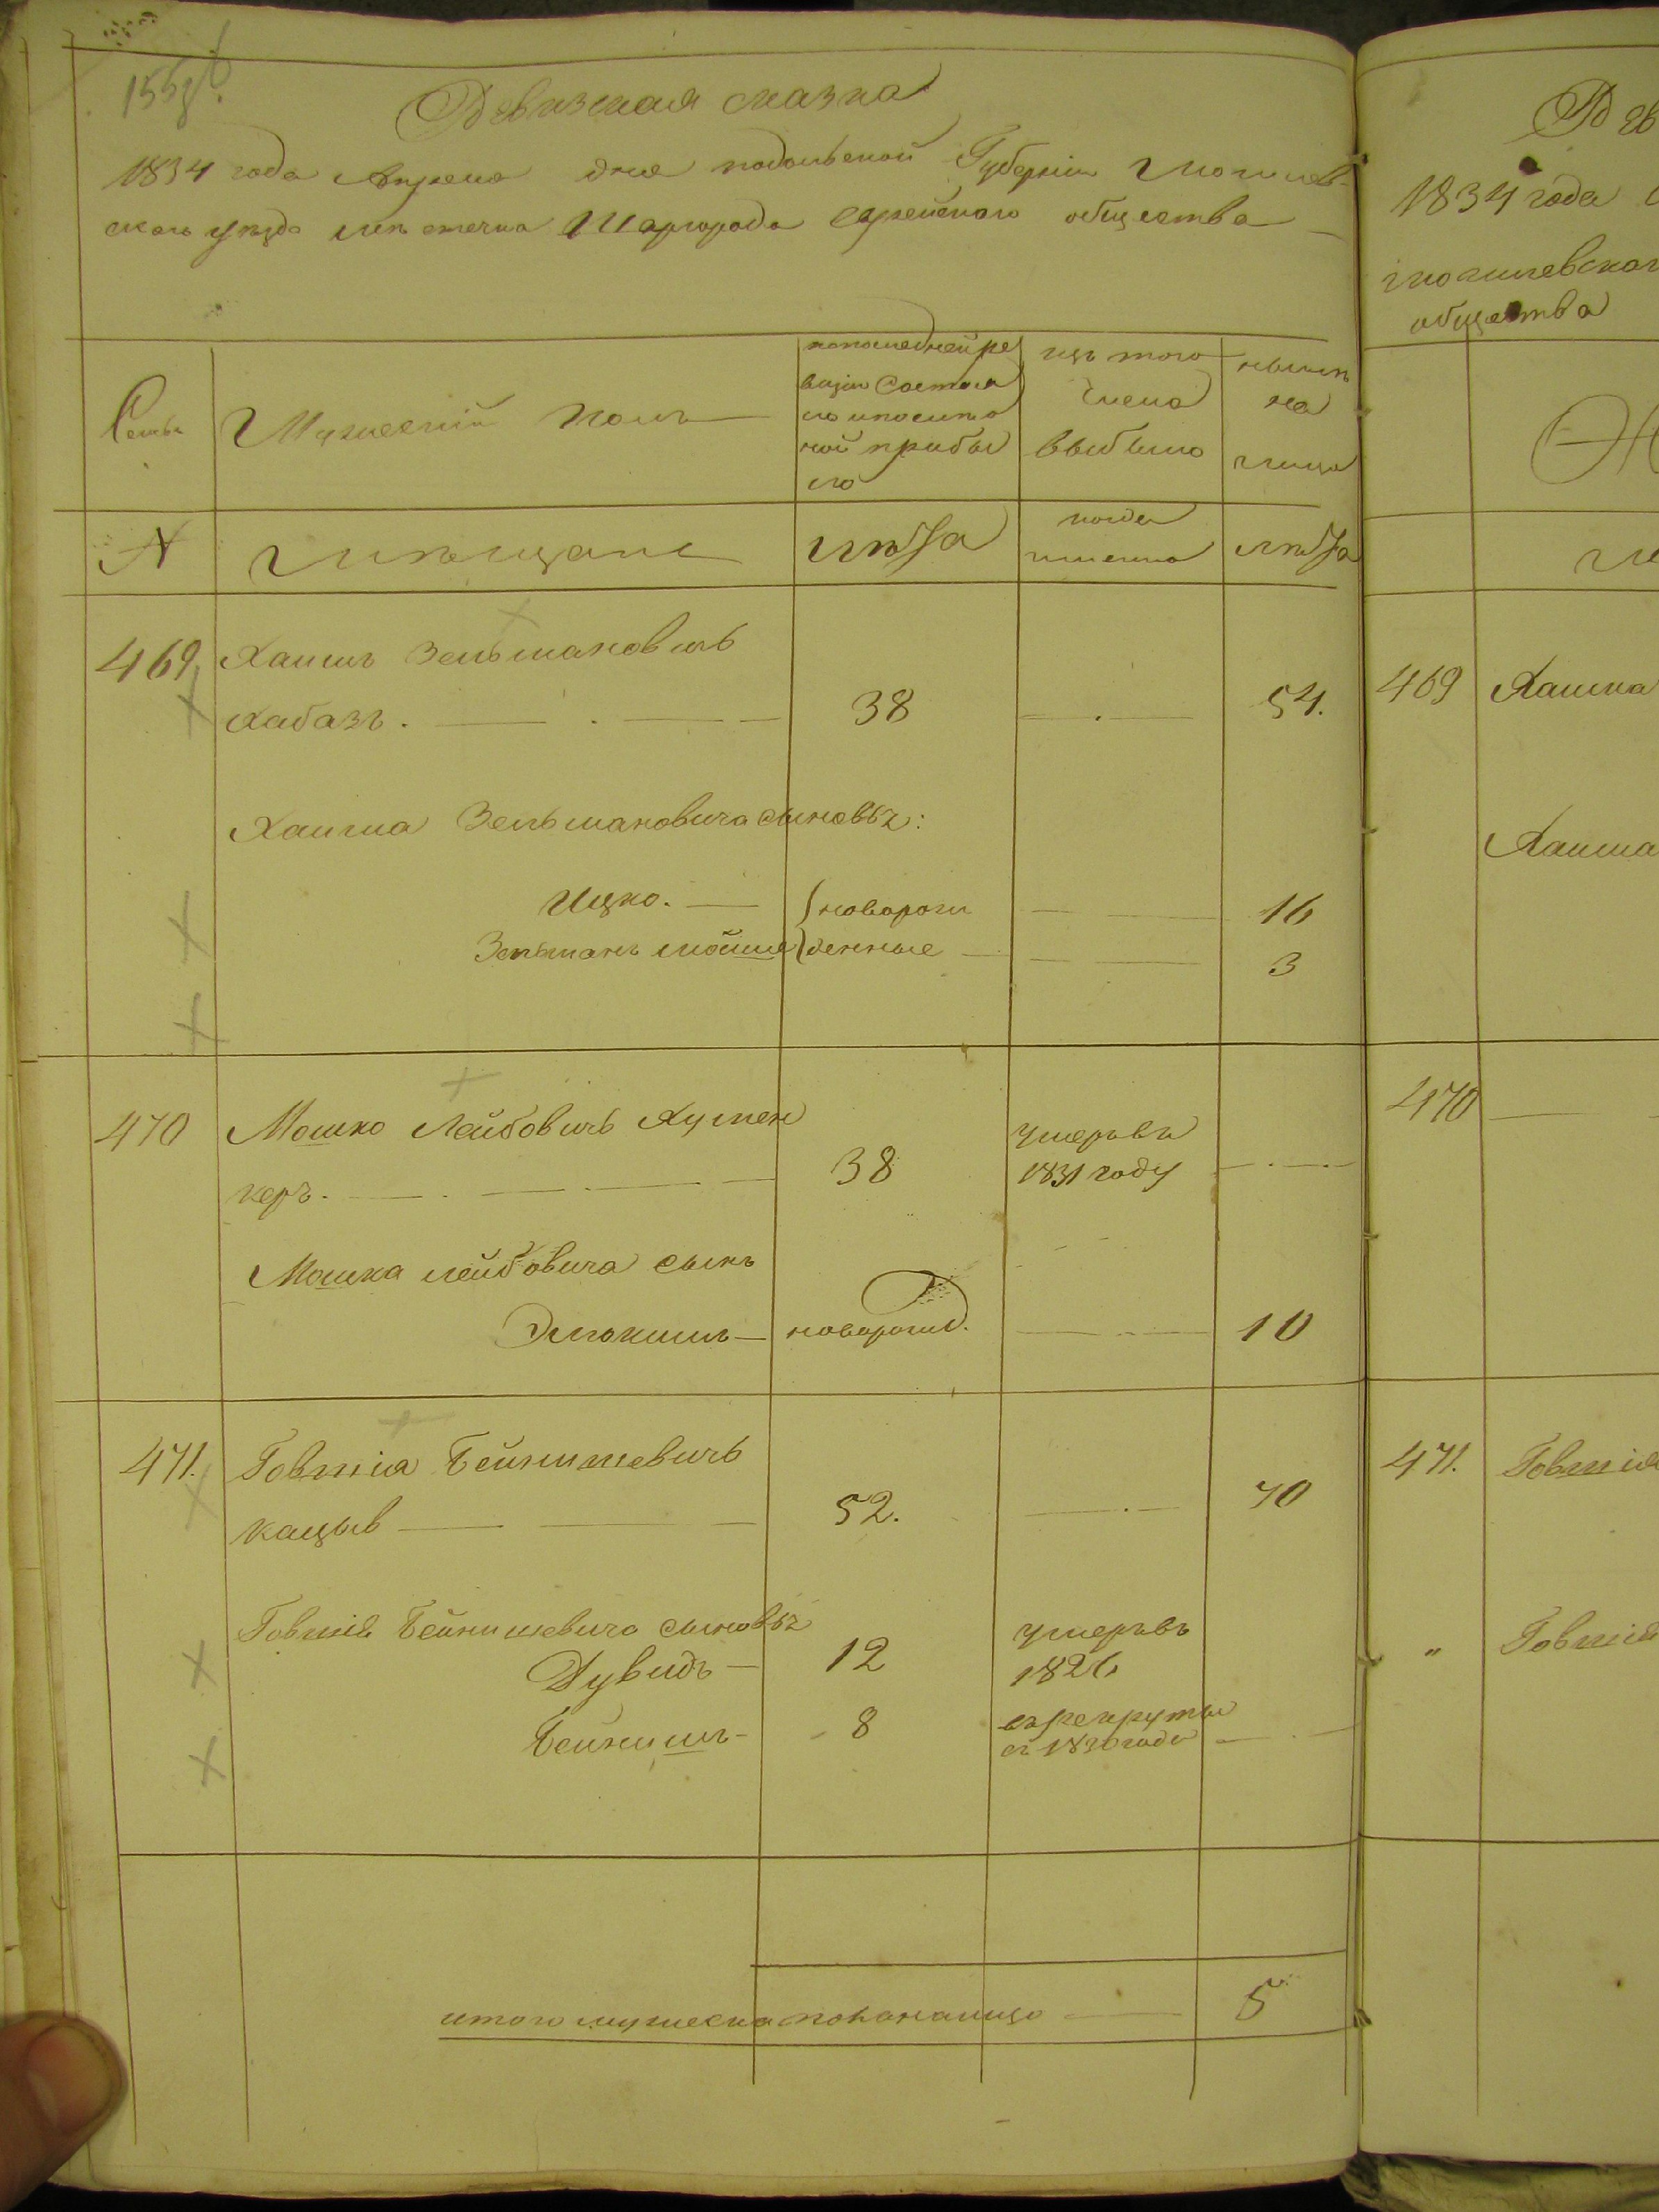 Ревизская сказка
1834 года Апреля дня подольской Губернiи Могилев-
скаго уезда местечка Шаргорода Еврейскаго общества
Семьи
Мужеский полъ
по последней ре
визiи состоя
ло и после о
ной прибы
ло
изъ того
числа
выбыло
ныне
на
лицо
№
Мѣщане
лѣта
когда
именно
лѣта
469
Хаимъ Зельмановичъ
Хабазъ.
38
54.
Хаима Зельмановича сыновья:
Ицко.
новорож
16
Зельманъ Мойше
денные
3
470
Мошко Лейбовичъ Хутен
керъ.
38
умеръ въ
1831 году
Мошка Лейбовича сынъ
Элюкимъ
новорожд.
10
471.
Говшiя Бейнишевичъ
Кацывъ
52.
70
Говшiя Бейнишевича сыновья
Дувидъ
12
умеръ въ
1826
Бейнишъ
8
в рекруты
съ 1830 года
итого мужеска пола на лицо
5
Рев
1834 года
Могилевскаг
общества
Ж
469
Хаима
Хаима
470
471.
Говшiя
"
Говшiя